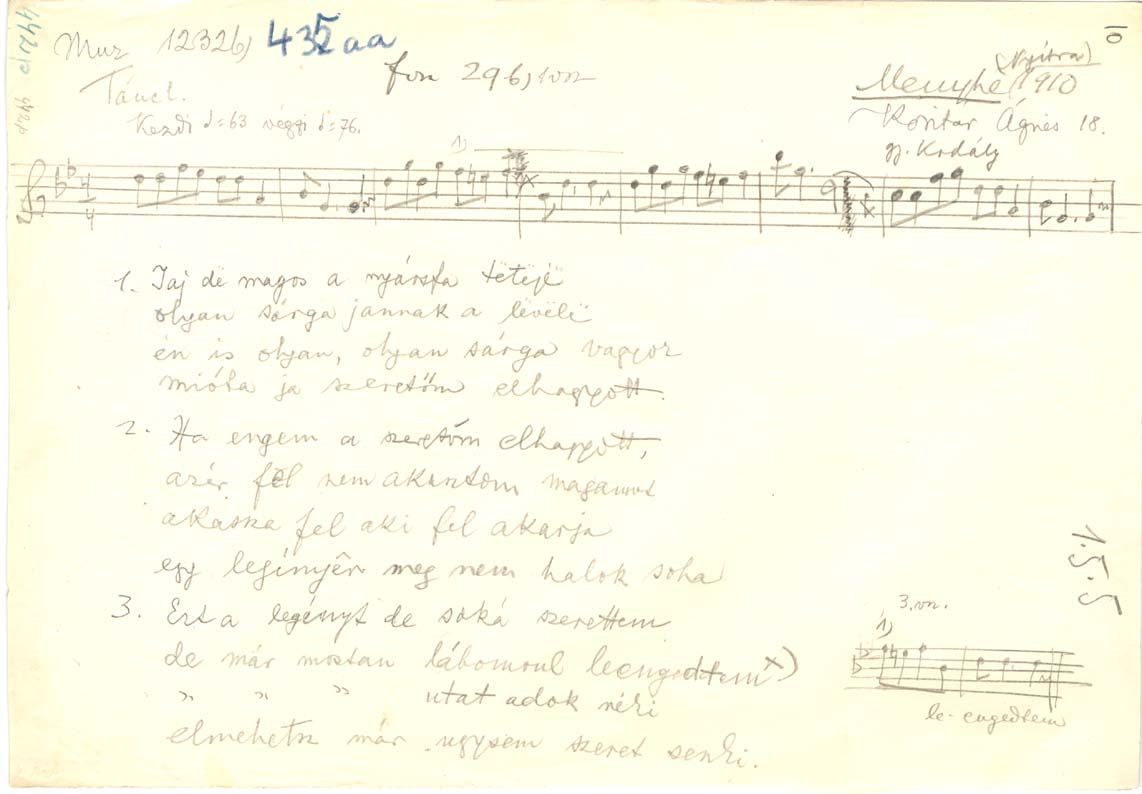 Muz 1232b) 435aa
10
fon 296) 10sz
(Nyitra)
Menyhe 1910
Táncl.
Kezdi ♩=63 végzi ♩=76.
Ágnes 18.
gy. Kodály
1)
4
4
1. Jaj dë magos a nyársfa tëtejë
olyan sárga jannak a lëvëlë
én is olyan, olyan sárga vagyok
mióta ja szeretőm elhagyott.
2. Ha engem a szeretőm elhagyott,
azér fël nem akasztom magamot
akassza fel aki fel akarja
egy legínyêr meg nem halok soha
3. Ezt a legényt de soká szerettem
de már mostan lábomrul leengedtem x)
" " " utat adok néki
elmehetsz már ugysem szeret senki.
1.5.5
3. vsz.
1)
le-engedtem